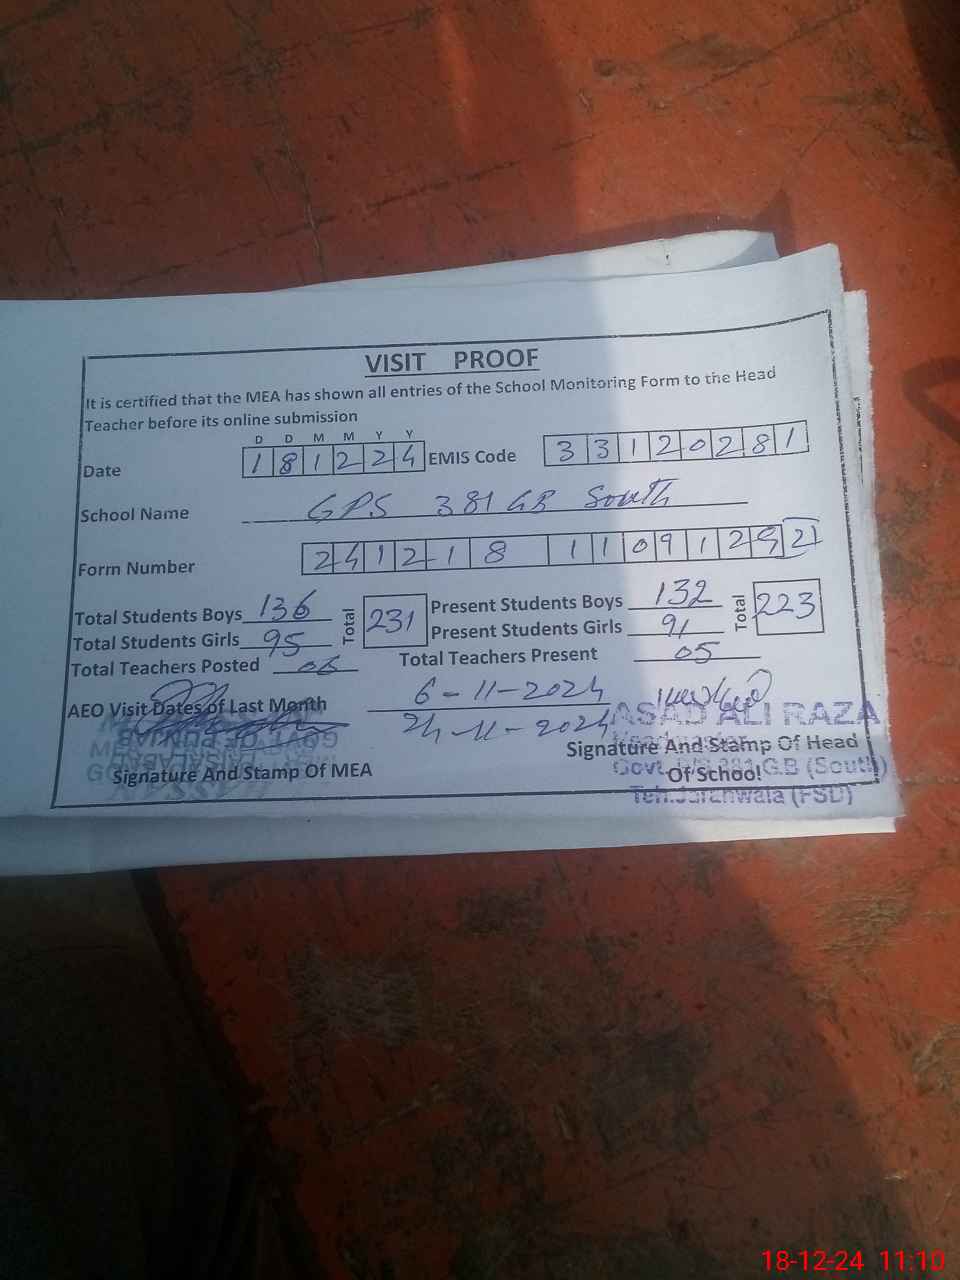 VISIT PROOF
It is certified that the MEA has shown all entries of the School Monitoring Form to the Head
Teacher before its online submission
D D M M Y Y
Date 1 8 1 2 2 4 EMIS Code 3 3 1 2 0 2 8 1
School Name GPS 381 GB South
Form Number 2 4 1 2 1 8 1 1 0 9 1 2
Total Students Boys 136 Total 231 Present Students Boys 132 Total 223
Total Students Girls 95 Present Students Girls 91
Total Teachers Posted Total Teachers Present 05
AEO Visit Dates of Last Month 6-11-2024
-11-2024
ASAD ALI RAZA
Headmaster
Signature And Stamp Of MEA
Signature And Stamp Of Head
Of School
Govt. P/S 381 G.B (South)
Teh.Jaranwala (FSD)
GOVT. OF PUNJAB
FAISALABAD
18-12-24 11:10